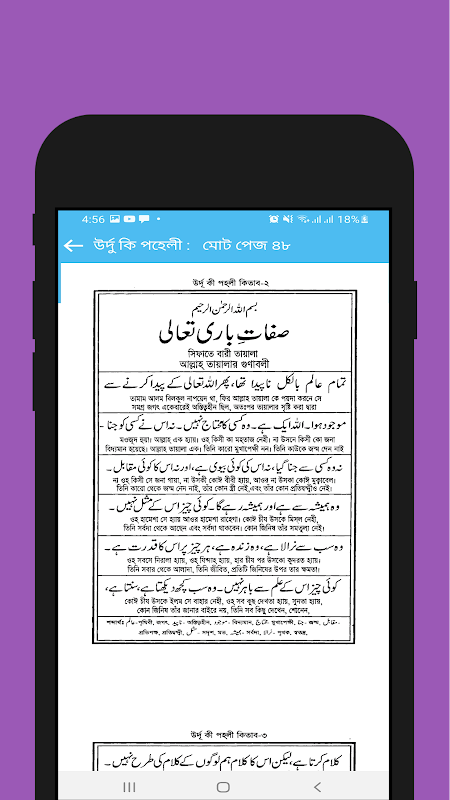 4:56
18%
উর্দু কি পহেলী : মোট পেজ ৪৮
উর্দূ কী পহলী কিতাব-২
بسم اللہ الرحمٰن الرحیم
صفاتِ باری تعالی
সিফাতে বারী তায়ালা
আল্লাহ তায়ালার গুণাবলী
تمام عالم بالکل ناپید تھا، پھر اللہ تعالی کے پیدا کرنے سے
তামাম আলম বিলকুল নাপয়েদ থা, ফির আল্লাহ তায়ালা কে পয়দা করনে সে
সমগ্র জগৎ একেবারেই অস্তিত্বহীন ছিল, অতঃপর তায়ালার সৃষ্টি করা দ্বারা
موجود ہوا۔ اللہ ایک ہے۔ وہ کسی کا محتاج نہیں۔ نہ اس نے کسی کو جنا۔
মওজূদ হুয়া। আল্লাহ এক হ্যায়। ওহ কিসী কা মহতাজ নেহী। না উসনে কিসী কো জনা
বিদ্যমান হয়েছে। আল্লাহ তায়ালা এক। তিনি কারো মুখাপেক্ষী নন। তিনি কাউকে জন্ম দেন নাই
نہ وہ کسی سے جنا گیا، نہ اس کی کوئی بیوی ہے، اور نہ اس کا کوئی مقابل۔
না ওহ কিসী সে জনা গায়া, না উসকী কোঈ বীবী হ্যায়, আওর না উসকা কোঈ মুকাবেল।
তিনি কারো থেকে জন্ম নেন নাই, তাঁর কোন স্ত্রী নেই,এবং তাঁর কোন প্রতিদ্বন্দ্বীও নেই।
وہ ہمیشہ سے ہے اور ہمیشہ رہے گا۔ کوئی چیز اس کے مثل نہیں۔
ওহ হামেশা সে হ্যায় আওর হামেশা রাহেগা। কোঈ চীয উসকে মিস্‌ল নেহী,
তিনি সর্বদা থেকে আছেন এবং সর্বদা থাকবেন। কোন জিনিষ তাঁর সমতুল্য নেই।
وہ سب سے نرالا ہے، وہ زندہ ہے، ہر چیز پر اس کا قدرت ہے۔
ওহ সবসে নিরালা হ্যায়, ওহ যিন্দাহ্ হ্যায়, হার চীয পর উসকো কুদরত হ্যায়।
তিনি সবার থেকে আলাদা, তিনি জীবিত, প্রতিটি জিনিষের উপর তার ক্ষমতা।
کوئی چیز اس کے علم سے باہر نہیں۔ وہ سب کچھ دیکھتا ہے، سنتا ہے،
কোঈ চীয উসকে ইলম সে বাহার নেহী, ওহ সব কুছ দেখতা হ্যায়, সুনতা হ্যায়,
কোন জিনিষ তাঁর জানার বাইরে নয়, তিনি সব কিছু দেখেন, শোনেন,
উর্দূ কী পহলী কিতাব-৩
کلام کرتا ہے، لیکن اس کا کلام ہم لوگوں کے کلام کی طرح نہیں۔